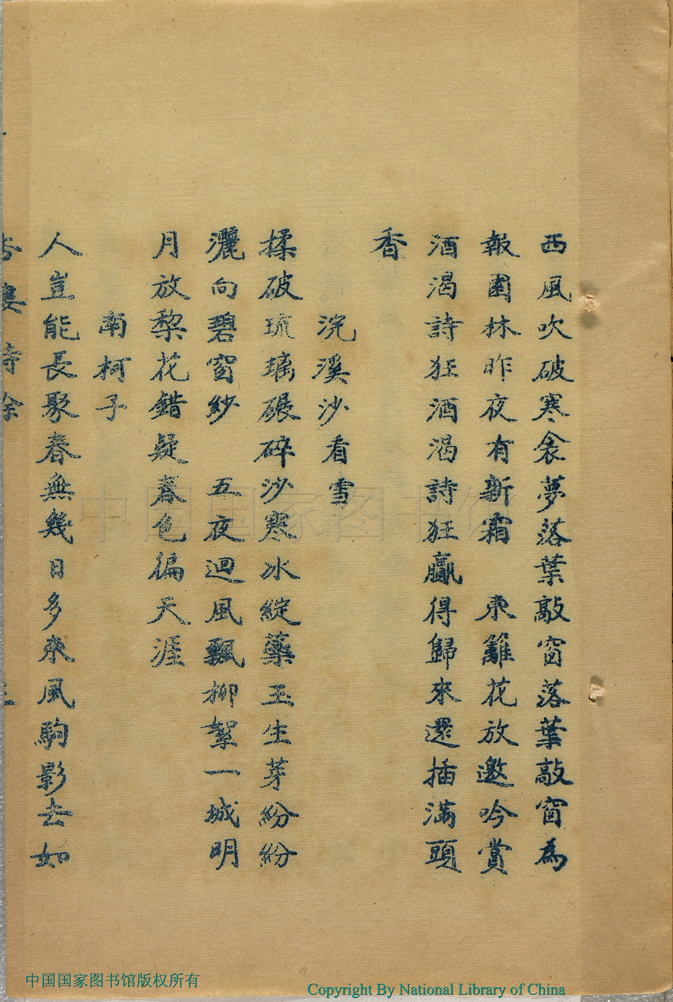 西風吹破寒衾夢落葉敲窗落葉敲窗爲
報園林昨夜有新霜　東籬花放邀吟賞
酒渴詩狂酒渴詩狂贏得歸來還插滿頭
香
浣溪沙看雪
揉破琉璃碾碎沙寒冰綻藥玉生芽紛紛
灑向碧窗紗　五夜迴風飄柳絮一城明
月放棃花錯疑春色徧天涯
南柯子
人豈能長聚春無幾日多東風駒影去如
中国国家图书馆
中国国家图书馆版权所有
Copyright By National Library of China